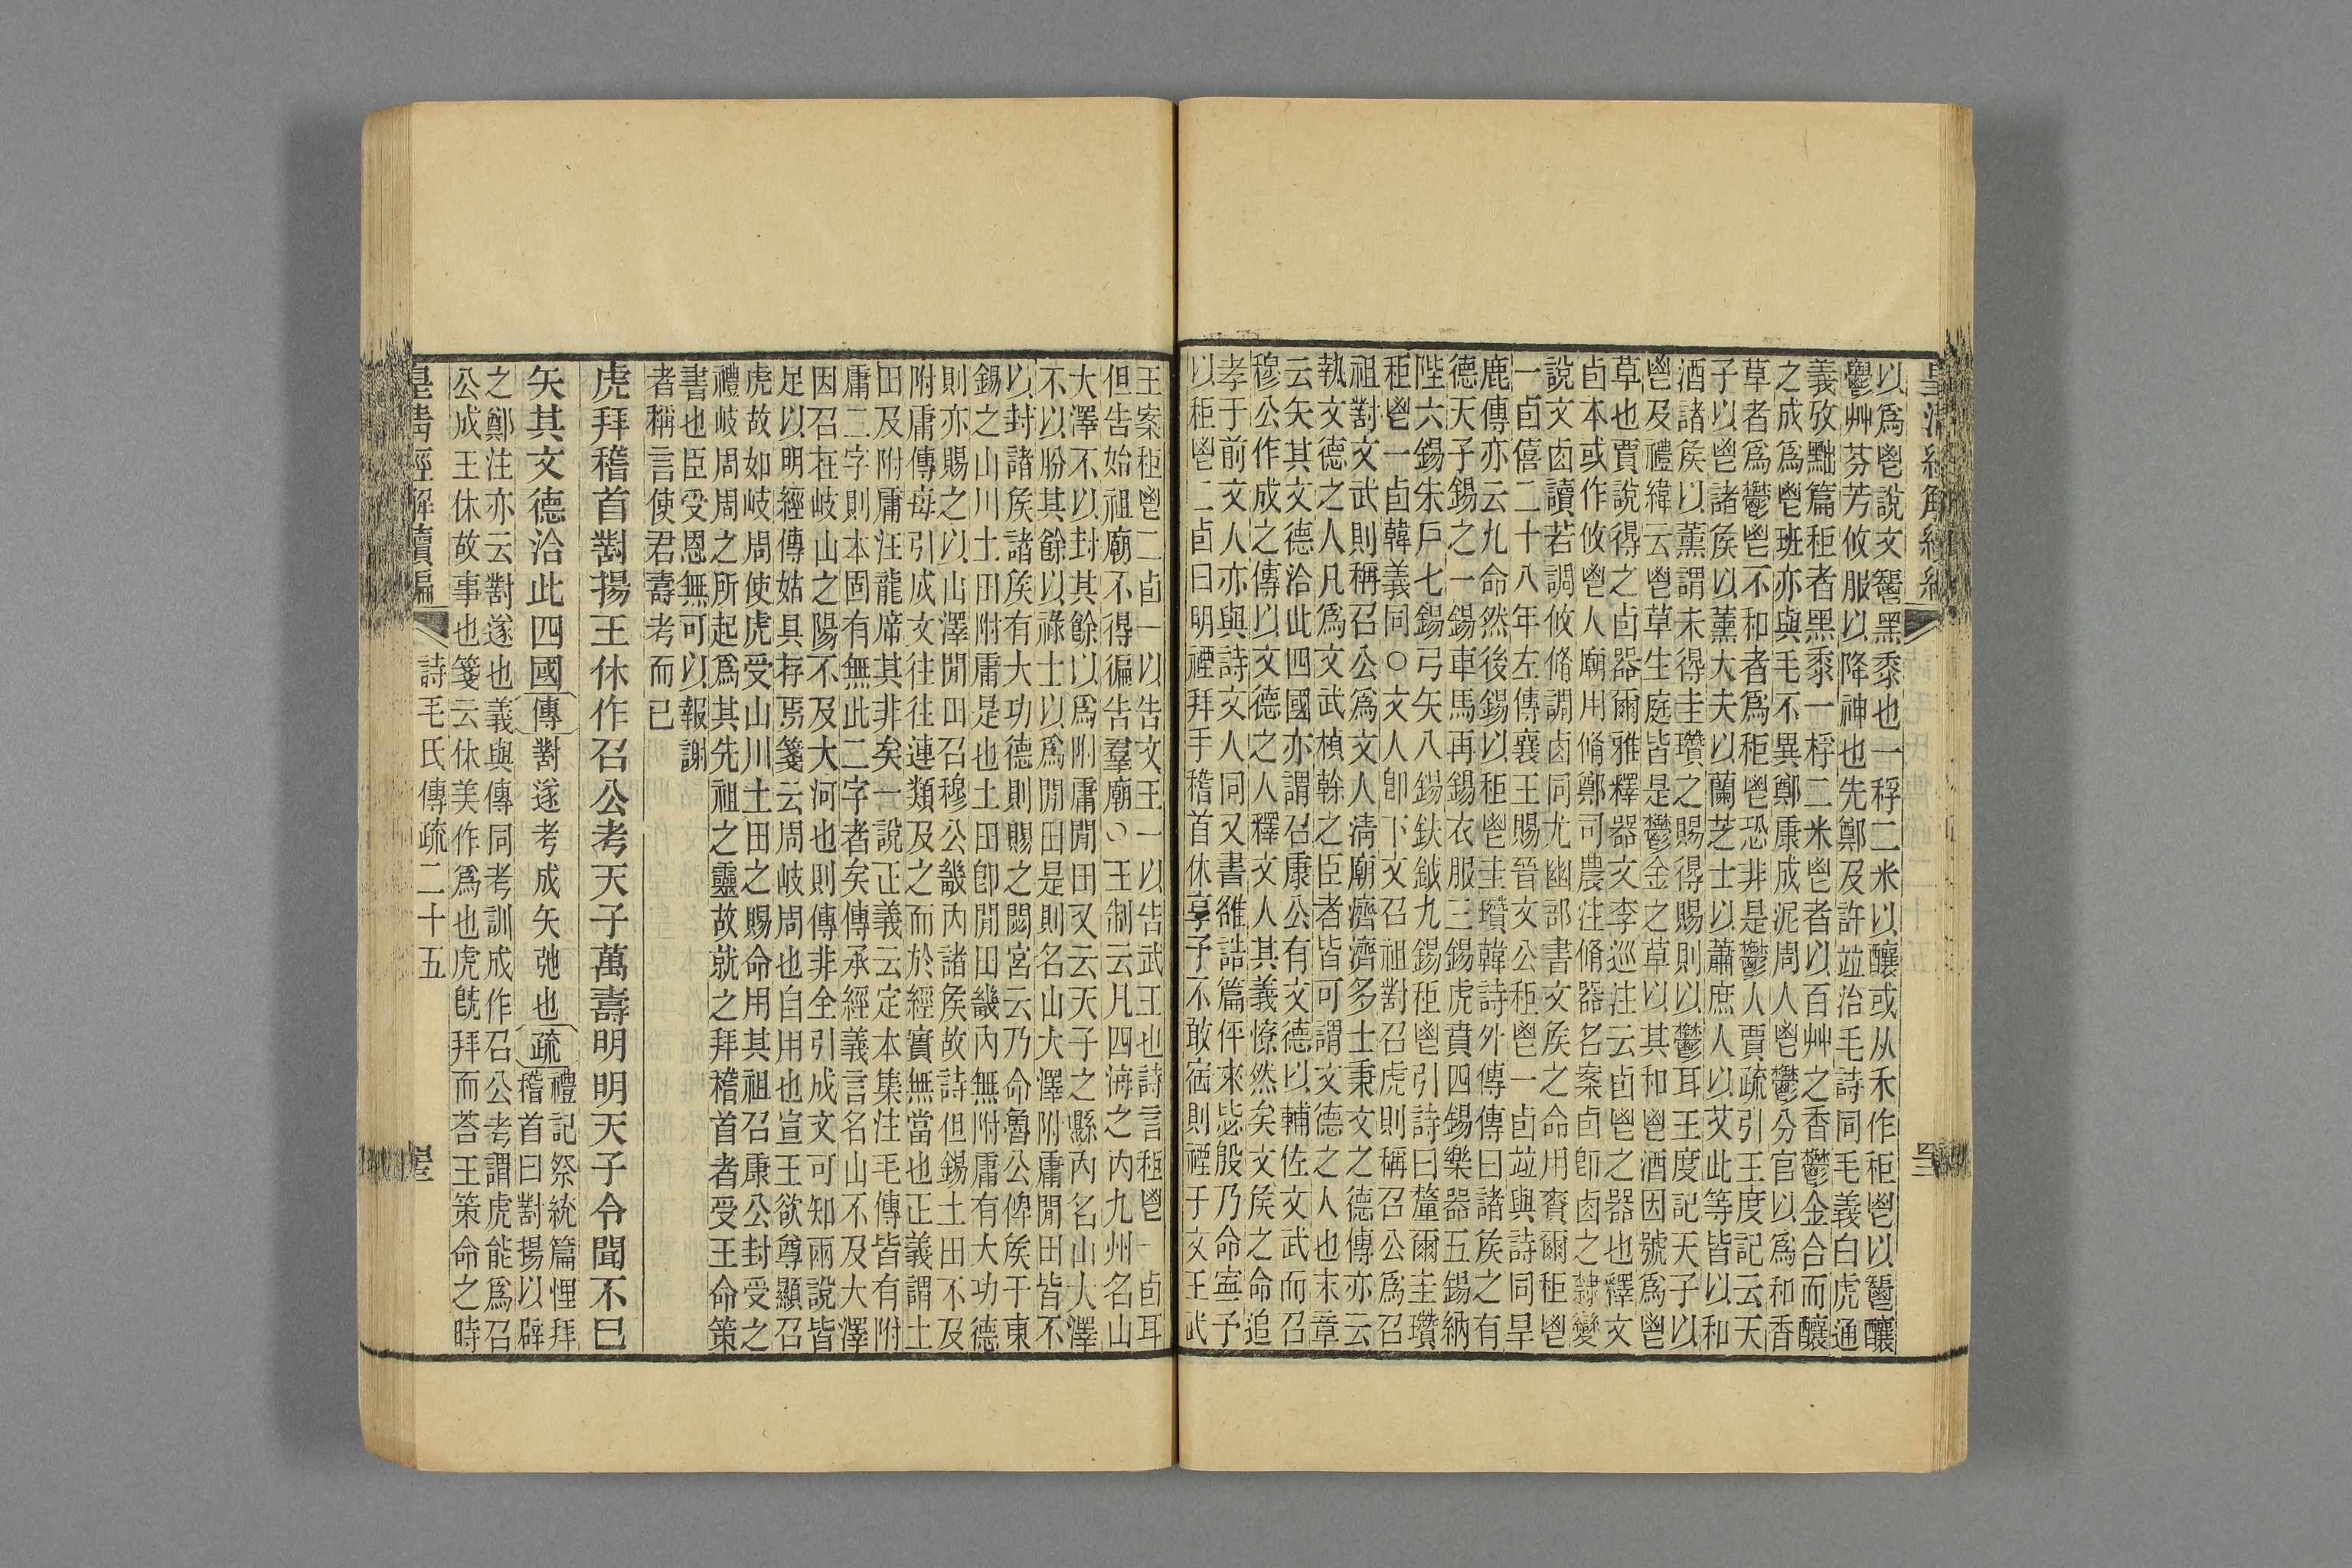 以爲鬯說文䰝黑黍也一稃二米以釀或从禾作秬鬯以䰝釀
鬱艸芬芳攸服以降神也先鄭及許竝治毛詩同毛義白虎通
義攷黜篇秬者黑黍一稃二米鬯者以百艸之香鬱金合而釀
之成爲鬯班亦與毛不異鄭康成泥周人鬯鬱分官以爲和香
草者爲鬱鬯不和者爲秬鬯恐非是鬱人賈疏引王度記云天
子以鬯諸矦以薰大夫以蘭芝士以蕭庶人以艾此等皆以和
酒諸矦以薰謂未得圭瓚之賜得賜則以鬱耳王度記天子以
鬯及禮緯云鬯草生庭皆是鬱金之草以其和鬯酒因號爲鬯
草也賈說得之卣器爾雅釋器文李巡注云卣鬯之器也釋文
卣本或作攸鬯人廟用脩鄭司農注脩器名案卣卽卤之隸變
說文卤讀若調攸脩調卤同尤幽部書文矦之命用賚爾秬鬯
一卣僖二十八年左傳襄王賜晉文公秬鬯一卣竝與詩同旱
鹿傳亦云九命然後錫以秬鬯圭瓚韓詩外傳傳曰諸矦之有
德天子錫之一錫車馬再錫衣服三錫虎賁四錫樂器五錫納
陛六錫朱戶七錫弓矢八錫鈇鉞九錫秬鬯引詩曰釐爾圭瓚
秬鬯一卣韓義同○文人卽下文召祖對召虎則稱召公爲召
祖對文武則稱召公爲文人淸廟濟濟多士秉文之德傳亦云
執文德之人凡爲文武楨榦之臣者皆可謂文德之人也末章
云矢其文德洽此四國亦謂召康公有文德以輔佐文武而召
穆公作成之傳以文德之人釋文人其義憭然矣文矦之命追
孝于前文人亦與詩文人同又書雒誥篇伻來毖殷乃命寍予
以秬鬯二卣曰明禋拜手稽首休享予不敢宿則禋于文王武
王案秬鬯二卣一以告文王一以告武王也詩言秬鬯一卣耳
但告始祖廟不得徧告羣廟○王制云凡四海之內九州名山
大澤不以封其餘以爲附庸閒田又云天子之縣內名山大澤
不以朌其餘以祿士以爲閒田是則名山大澤附庸閒田皆不
以封諸矦諸矦有大功德則賜之閟宮云乃命魯公俾矦于東
錫之山川土田附庸是也土田卽閒田畿內無附庸有大功德
則亦賜之以山澤閒田召穆公畿內諸矦故詩但錫土田不及
附庸傳每引成文往往連類及之而於經實無當也正義謂土
田及附庸汪龍席其非矣一說正義云定本集注毛傳皆有附
庸二字則本固有無此二字者矣傳承經義言名山不及大澤
因召在岐山之陽不及大河也則傳非全引成文可知兩說皆
足以明經傳姑具存焉箋云周岐周也自用也宣王欲尊顯召
虎故如岐周使虎受山川土田之賜命用其祖召康公封受之
禮岐周周之所起爲其先祖之靈故就之拜稽首者受王命策
書也臣受恩無可以報謝
者稱言使君壽考而已
虎拜稽首對揚王休作召公考天子萬壽明明天子令聞不已
矢其文德洽此四國傳對遂考成矢弛也疏禮記祭統篇悝拜
稽首曰對揚以辟
之鄭注亦云對遂也義與傳同考訓成作召公考謂虎能爲召
公成王休故事也箋云休美作爲也虎旣拜而荅王策命之時
皇淸經解續編 詩毛氏傳疏二十五